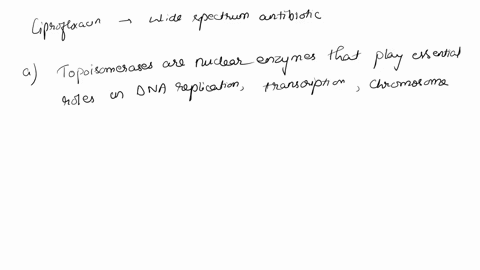 Ciprofloxacin → wide spectrum antibiotic
a) Topoisomerases are nuclear enzymes that play essential
roles in DNA replication, transcription, chromosome